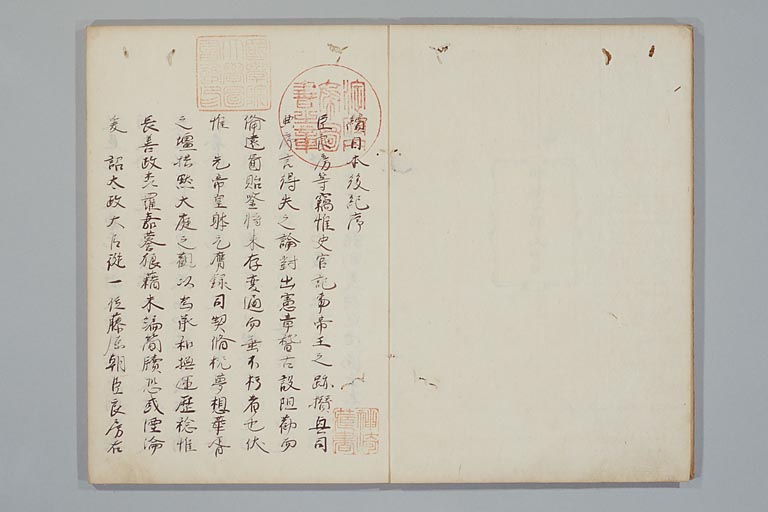 續日本後紀序
臣良房等竊惟史官記事帝王之跡攅興司
典序言得失之論對出憲章稽古設沮勸而
備遠圖貽鑒將來存変通而垂不朽者也伏
惟 先帝皇躰元膺籙司契脩机夢想華胥
之壃拱默大庭之觀以為承和撫運歴稔惟
長善政森羅嘉蓍狼藉未編簡牘恐或湮淪
爰 詔太政大臣從一位藤原朝臣良房右